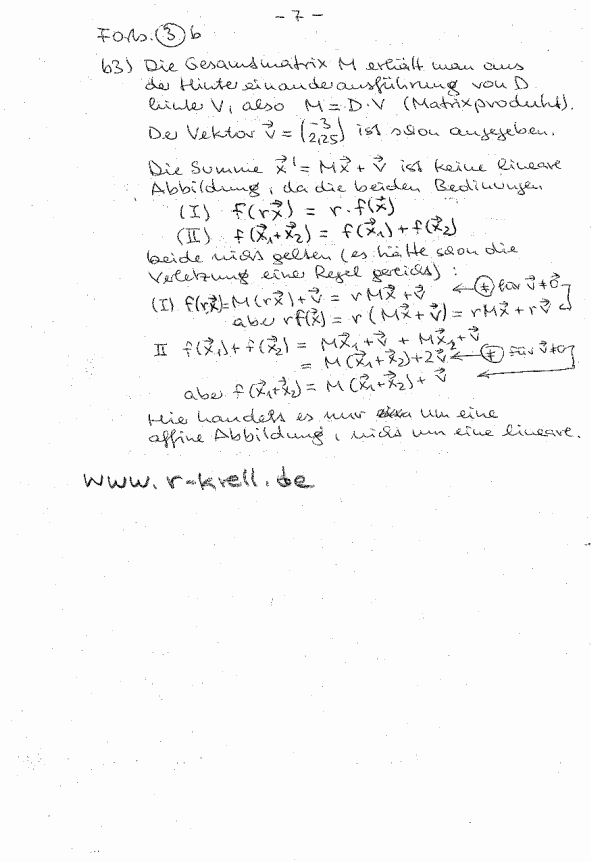 - 7 -
Forts. ③ b
b3) Die Gesamtmatrix M erhält man aus
der Hintereinanderausführung von D
hinter V, also M = D · V (Matrixprodukt).
Der Vektor v⃗ = (-3 2,25) ist schon angegeben.
Die Summe x⃗' = Mx⃗ + v⃗ ist keine lineare
Abbildung, da die beiden Bedinungen
(I) f(rx⃗) = r · f(x⃗)
(II) f(x⃗₁+x⃗₂) = f(x⃗₁) + f(x⃗₂)
beide nicht gelten (es hätte schon die
Verletzung einer Regel gereicht) :
(I) f(rx⃗) = M(rx⃗) + v⃗ = rMx⃗ + v⃗ ← ≠ für v⃗ ≠ 0
aber rf(x⃗) = r (Mx⃗ + v⃗) = rMx⃗ + rv⃗
II f(x⃗₁) + f(x⃗₂) = Mx⃗₁ + v⃗ + Mx⃗₂ + v⃗
= M(x⃗₁+x⃗₂) + 2v⃗ ← ≠ für v⃗ ≠ 0
aber f(x⃗₁+x⃗₂) = M(x⃗₁+x⃗₂) + v⃗
Hier handelt es nur um eine
affine Abbildung, nicht um eine lineare.
www.r-krell.de